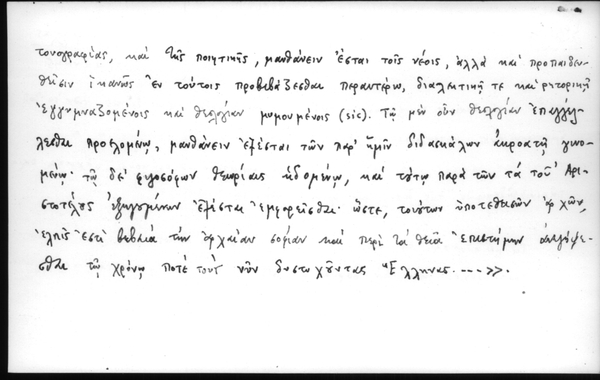 τονογραφίας, καὶ τῆς ποιητικῆς, μανθάνειν ἔσται τοῖς νέοις, ἀλλὰ καὶ προπαιδευ-
θεῖσιν ἱκανῶς ἐν τούτοις προβιβάζεσθαι περαιτέρω, διαλεκτικῇ τε καὶ ῥητορικῇ
ἐγγυμναζομένοις καὶ θεολογίαν μυουμένοις (sic). Τῷ μὲν οὖν θεολογίαν ἐπαγγέλ-
λεσθαι προελομένῳ, μανθάνειν ἐξέσται τῶν παρ' ἡμῖν διδασκάλων ἀκροατῇ γινο-
μένῳ· τῷ δὲ φιλοσόφων θεωρίαις ἡδομένῳ, καὶ τούτῳ παρὰ τῶν τὰ τοῦ Ἀρι-
στοτέλους ἐξηγουμένων ἔξεσται ἐμφορεῖσθαι· ὥστε, τοιούτων ὑποτεθεισῶν ἀρχῶν,
ἐλπὶς ἐστὶ βεβαιά τὴν ἀρχαίαν σοφίαν καὶ περὶ τὰ θεῖα ἐπιστήμην ἀναλήψε-
σθαι τῷ χρόνῳ ποτὲ τοὺς νῦν δυστυχοῦντας Ἕλληνας ---».